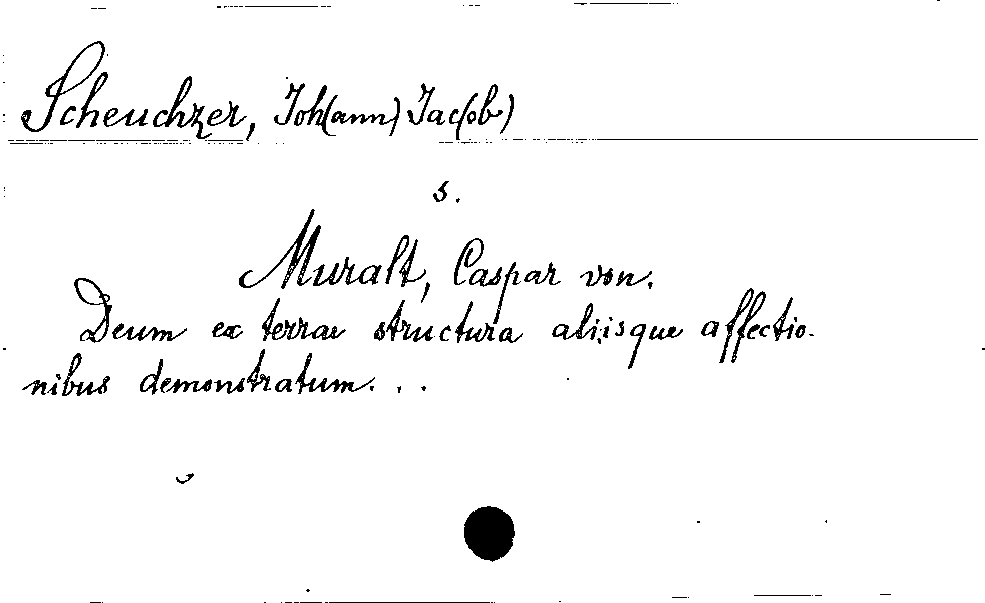 Scheuchzer, Joh(ann) Jac(ob)
s.
Muralt, Caspar von.
Deum ex terrae structura aliisque affectio-
nibus demonstratum...